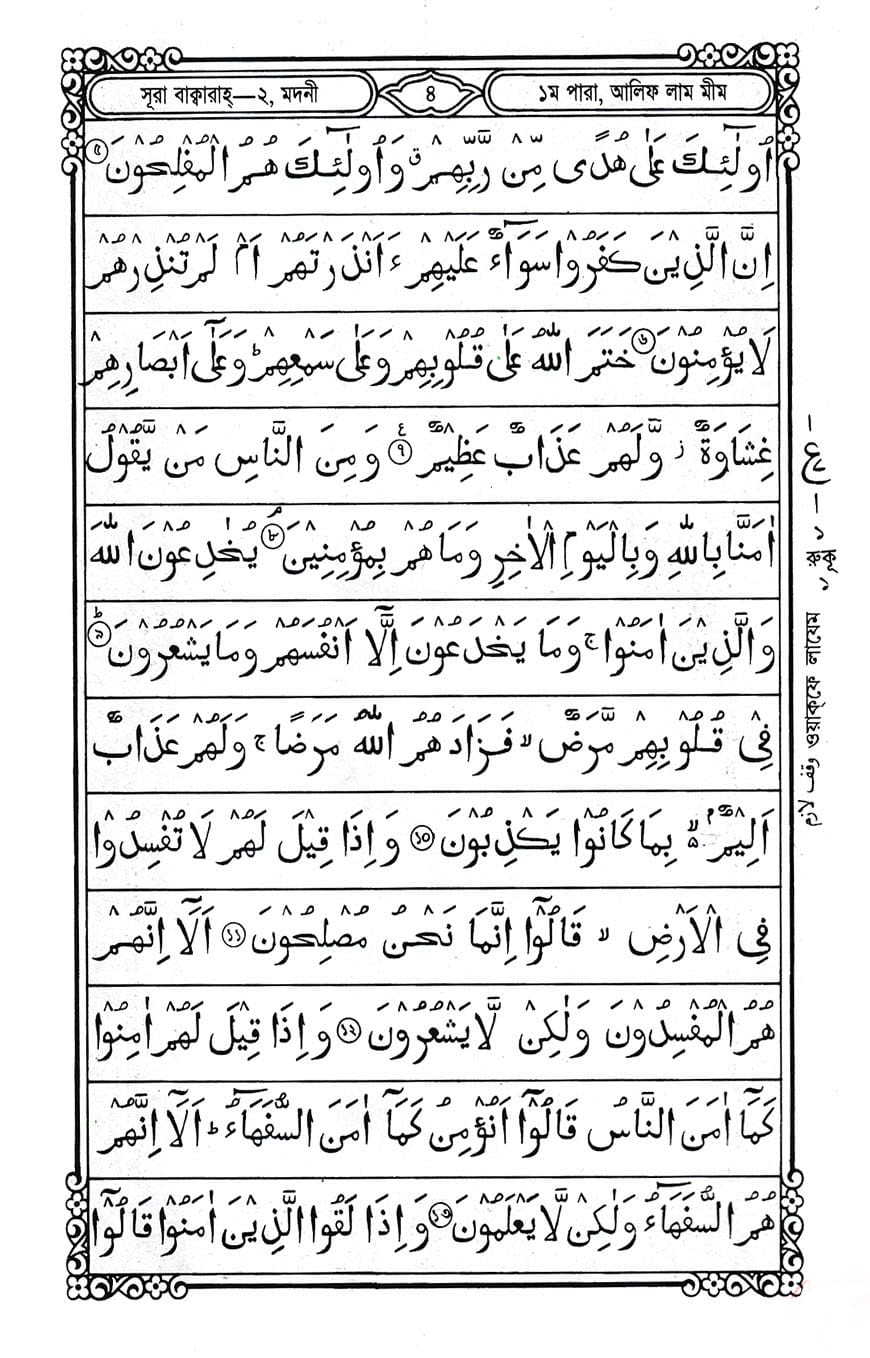 সূরা বাক্বারাহ্—২, মদনী
৪
১ম পারা, আলিফ লাম মীম
اُولٰٓئِكَ عَلٰى هُدًى مِّنْ رَّبِّهِمْ ۙ وَاُولٰٓئِكَ هُمُ الْمُفْلِحُوْنَ ৫
اِنَّ الَّذِيْنَ كَفَرُوْا سَوَآءٌ عَلَيْهِمْ ءَاَنْذَرْتَهُمْ اَمْ لَمْ تُنْذِرْهُمْ
لَا يُؤْمِنُوْنَ ৬ خَتَمَ اللّٰهُ عَلٰى قُلُوْبِهِمْ وَعَلٰى سَمْعِهِمْ ؕ وَعَلٰٓى اَبْصَارِهِمْ
غِشَاوَةٌ ز وَّلَهُمْ عَذَابٌ عَظِيْمٌ ৭ ع وَمِنَ النَّاسِ مَنْ يَّقُوْلُ
اٰمَنَّا بِاللّٰهِ وَبِالْيَوْمِ الْاٰخِرِ وَمَا هُمْ بِمُؤْمِنِيْنَ ৮ ۘ يُخٰدِعُوْنَ اللّٰهَ
وَالَّذِيْنَ اٰمَنُوْا ۚ وَمَا يَخْدَعُوْنَ اِلَّآ اَنْفُسَهُمْ وَمَا يَشْعُرُوْنَ ৯ ؕ
فِيْ قُلُوْبِهِمْ مَّرَضٌ ۙ فَزَادَهُمُ اللّٰهُ مَرَضًا ۚ وَلَهُمْ عَذَابٌ
اَلِيْمٌۢ ۙ بِمَا كَانُوْا يَكْذِبُوْنَ ১০ وَاِذَا قِيْلَ لَهُمْ لَا تُفْسِدُوْا
فِى الْاَرْضِ ۙ قَالُوْٓا اِنَّمَا نَحْنُ مُصْلِحُوْنَ ১১ اَلَآ اِنَّهُمْ
هُمُ الْمُفْسِدُوْنَ وَلٰكِنْ لَّا يَشْعُرُوْنَ ১২ وَاِذَا قِيْلَ لَهُمْ اٰمِنُوْا
كَمَآ اٰمَنَ النَّاسُ قَالُوْٓا اَنُؤْمِنُ كَمَآ اٰمَنَ السُّفَهَآءُ ؕ اَلَآ اِنَّهُمْ
هُمُ السُّفَهَآءُ وَلٰكِنْ لَّا يَعْلَمُوْنَ ১৩ وَاِذَا لَقُوا الَّذِيْنَ اٰمَنُوْا قَالُوْٓا
ع
وقف لازم ওয়াক্‌ফে লাযেম